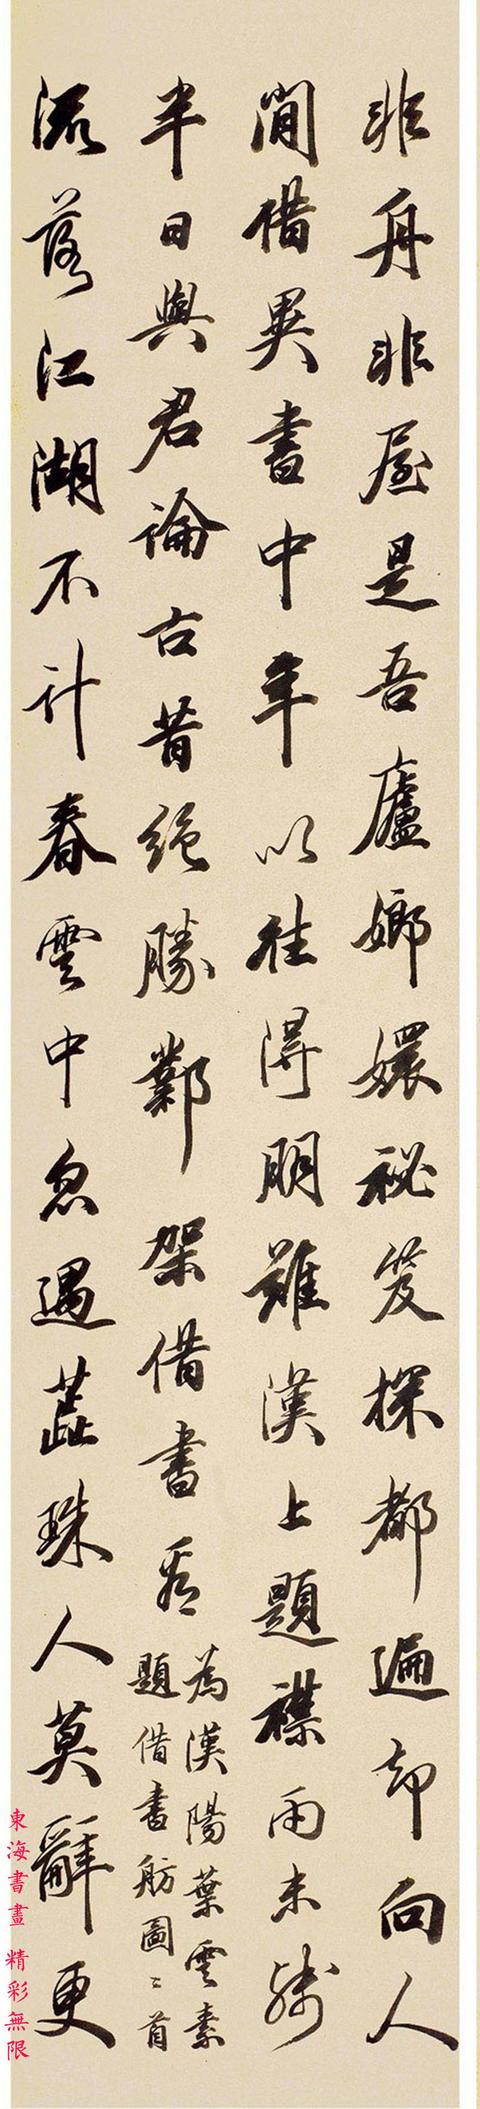 非舟非屋是吾廬嫏嬛祕笈探都遍却向人
間借異書中年以往得朋難漢上題襟雨未殘
半日與君論古昔絕勝鄴架借書看
為漢陽葉雲素
題借書舫圖二首
流落江湖不計春雲中忽遇蕋珠人莫辭更
東海書畫 精彩無限